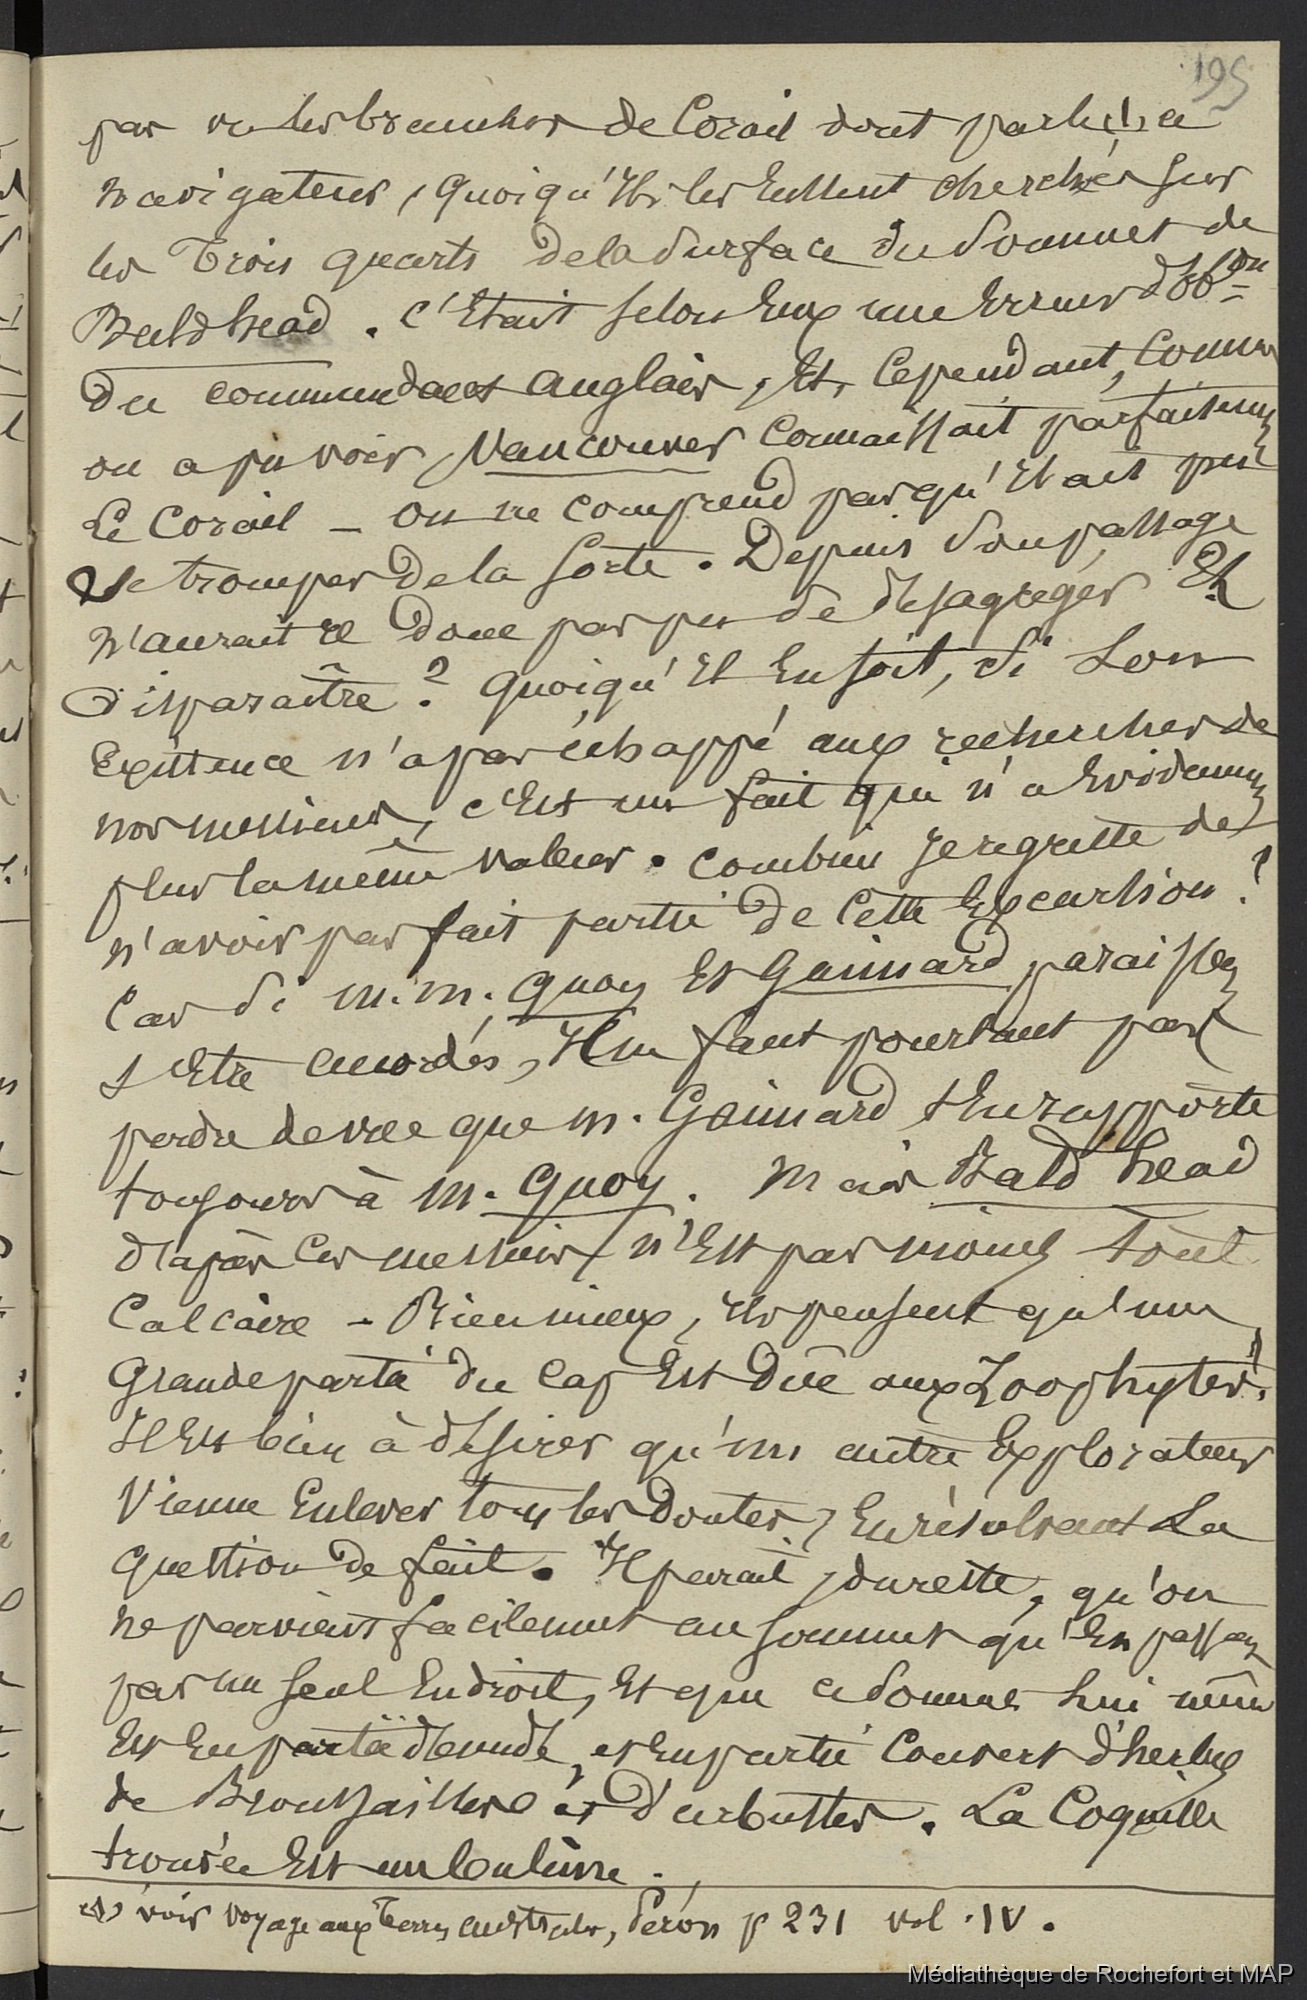 195
pas vu les branches de Corail dont parle ce
navigateur, quoiqu'Ils les Eussent cherchés sur
les Trois quarts de la Surface du Sommet de
Bald head. C'Etait selon Eux une Erreur d'obon
du commandant anglais, Et, Cependant, Comme
on a pu voir, Vancouver Connaissait parfaitement
Le Corail – On ne comprend pas qu'Il ait pu
se tromper de la Sorte. Depuis Son passage
N'aurait il Donc pas pu se desagreger Et
Disparaître ? quoiqu'Il En soit, Si Son
Existence n'a pas échappé aux recherches de
nos messieurs, c'Est un fait qui n'a Evidemment
plus la même valeur. combien je regrette de
n'avoir pas fait partie de Cette Excursion !
Car Si m.m. Quoy Et Gaimard paraissent
s'Etre accordés, Il ne faut pourtant pas
perdre de vue que m. Gaimard s'En rapporte
toujours à m. Quoy. Mais Bald head
d'après Ces messieurs n'Est pas moins tout
Calcaire – Bien mieux, Ils pensent qu'une
Grande partie du Cap Est Dûe aux Zoophytes.
Il Est bien à désirer qu'un autre Explorateur
Vienne Enlever tous les Doutes, En résolvant La
question de fait. Il parait, du reste, qu'on
ne parvient facilement au sommet qu'En passant
par un seul Endroit, Et que ce Sommet lui même
Est En partie dénudé, et En partie Couvert d'herbes
de Broussailles et D'arbustes. La Coquille
trouvée Est un bulime.
(1) voir voyage aux Terres australes, Péron p 231 vol. IV.
Médiathèque de Rochefort et MAP